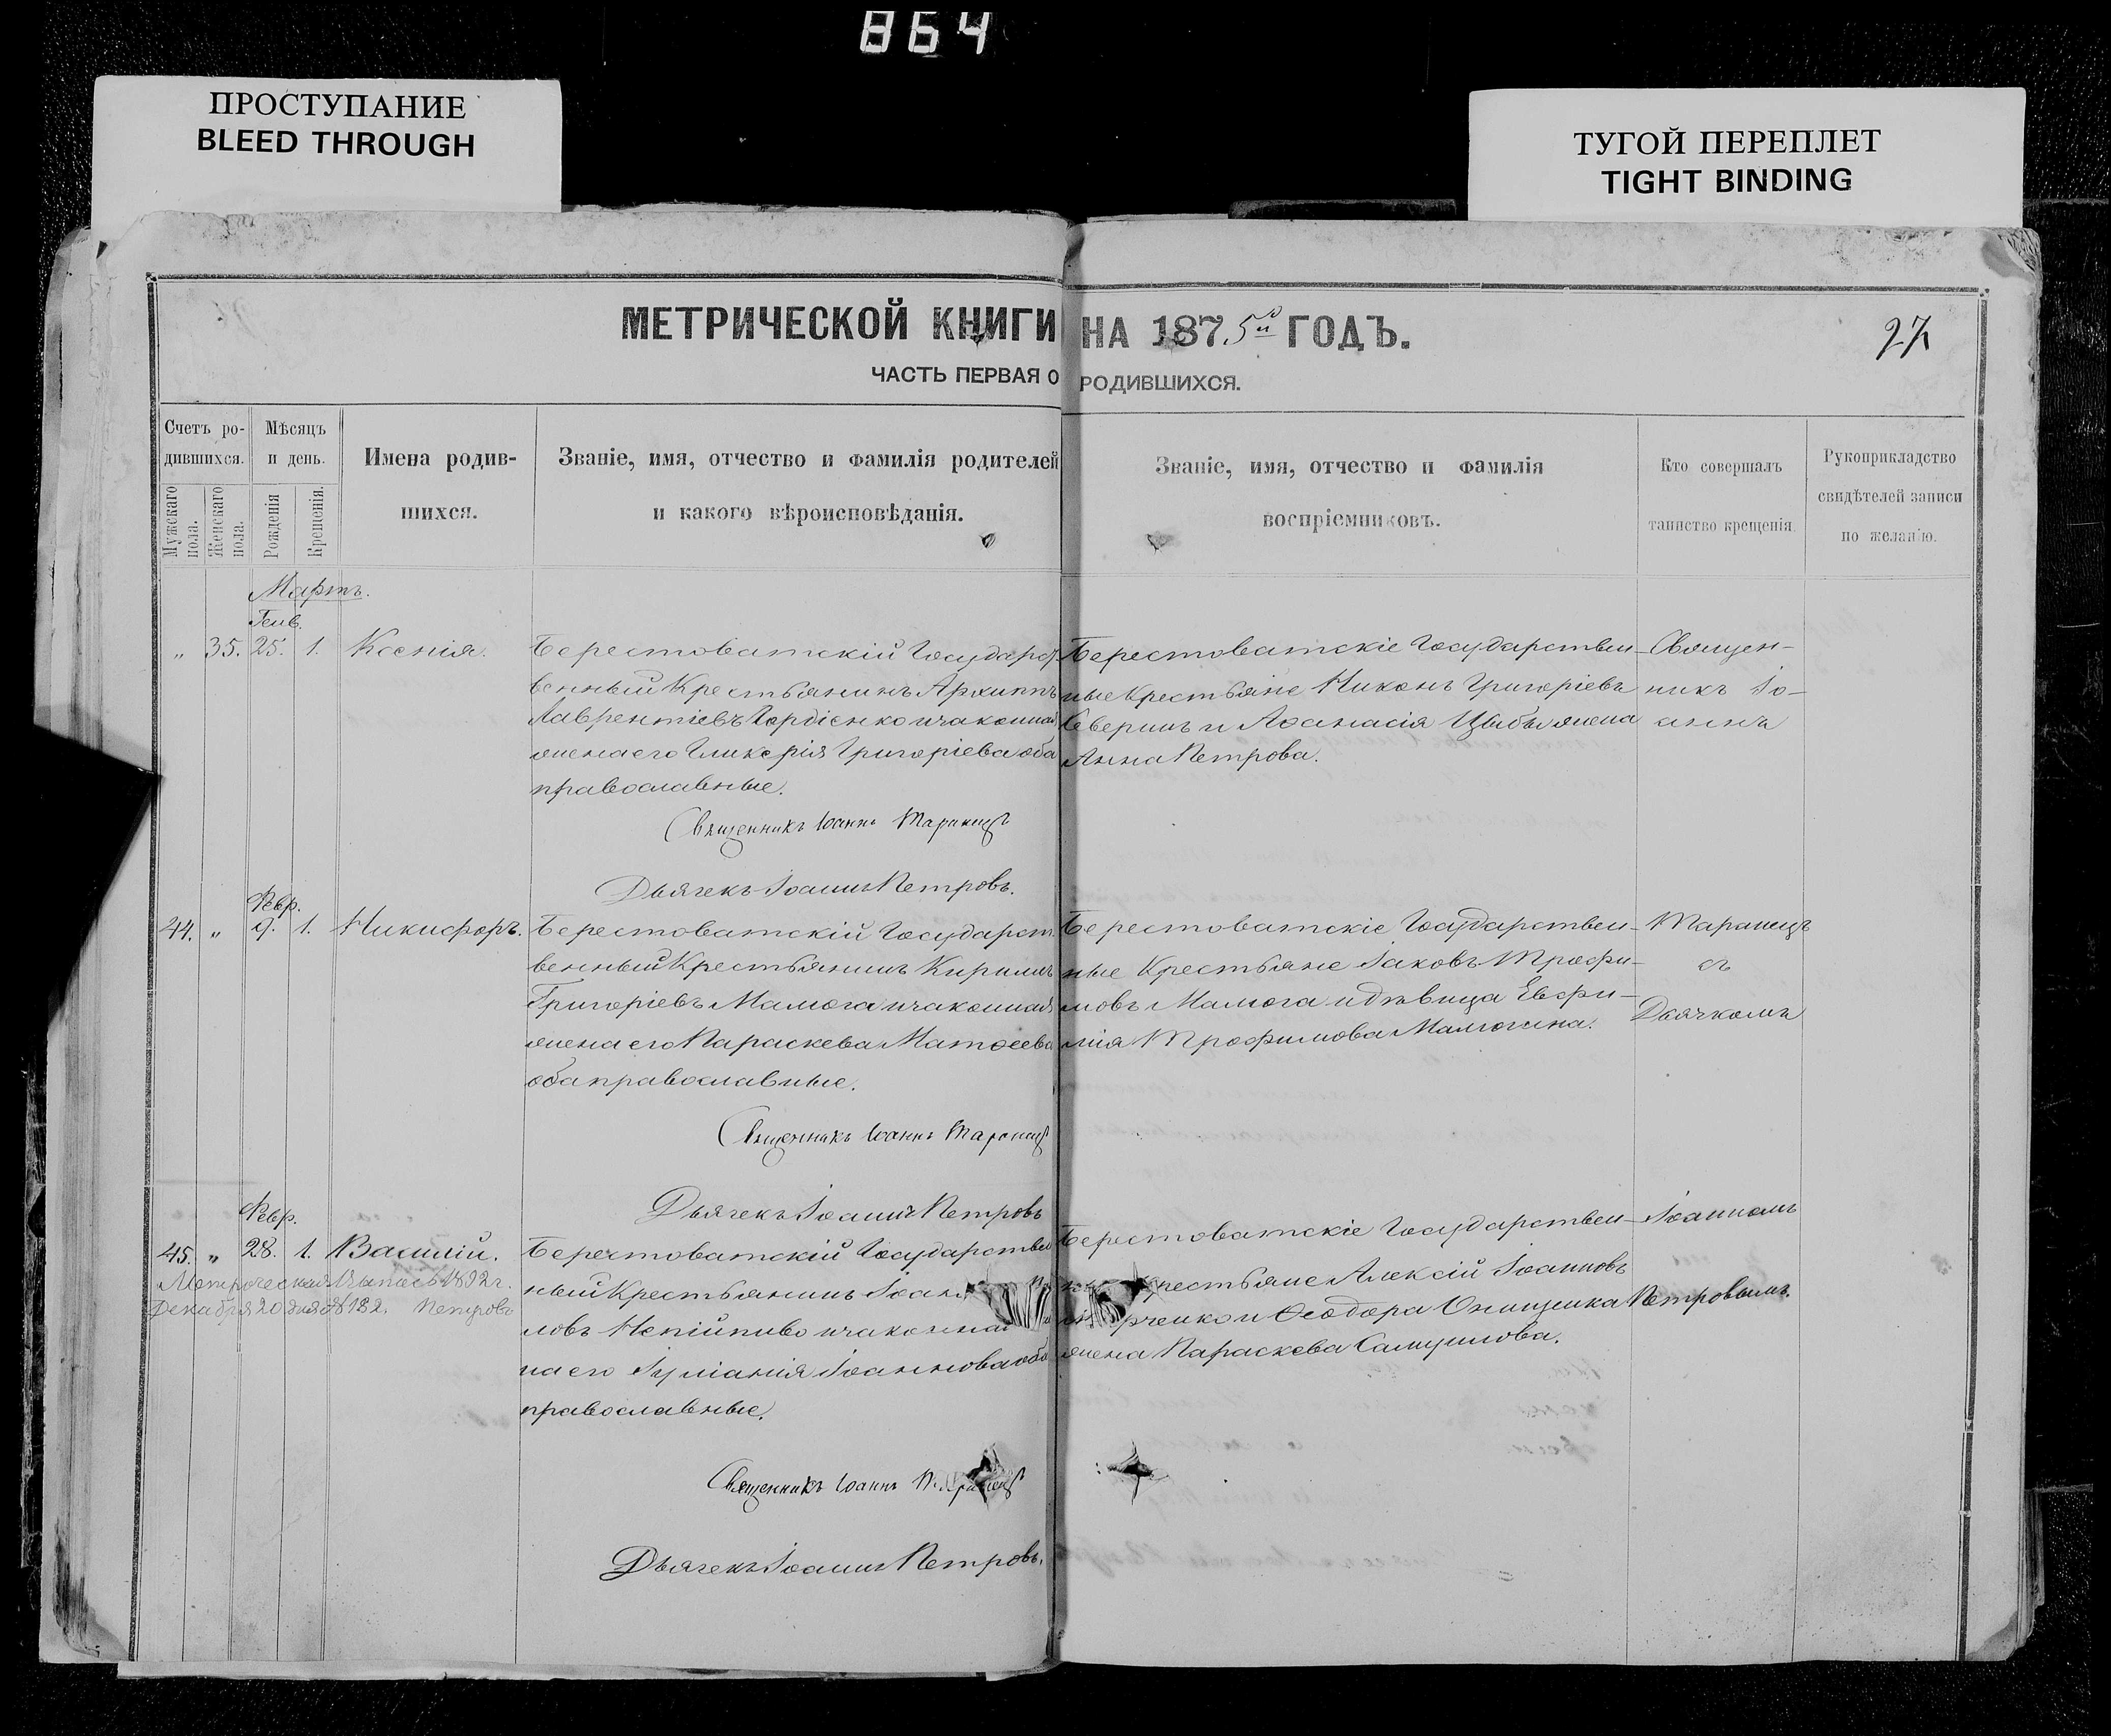 864
ПРОСТУПАНИЕ
BLEED THROUGH
ТУГОЙ ПЕРЕПЛЕТ
TIGHT BINDING
МЕТРИЧЕСКОЙ КНИГИ НА 1875й ГОДЪ.
27
ЧАСТЬ ПЕРВАЯ О РОДИВШИХСЯ.
Счетъ ро-
дившихся.
Мужскаго пола.
Женскаго пола.
Мѣсяцъ
и день.
Рожденія
Крещенія.
Имена родив-
шихся.
Званіе, имя, отчество и фамилія родителей
и какого вѣроисповѣданія.
Званіе, имя, отчество и фамилія
воспріемниковъ.
Кто совершалъ
таинство крещенія.
Рукоприкладство
свидѣтелей записи
по желанію.
Мартъ.
Генв.
„ 35. 25. 1. Ксенія.
Берестоватскій Государст
венный Крестьянинъ Архиппъ
Лаврентіевъ Гордіенко и законная
жена его Гликерія Григоріева оба
православные.
Священникъ Іоаннъ Таранецъ
Дьячекъ Іоаннъ Петровъ.
Берестоватскіе Государствен-
ные Крестьяне Никонъ Григоріевъ
Северинъ и Афанасія Цыбы жена
Анна Петрова.
Священ-
никъ Іо-
аннъ
Февр.
44. „ 9. 1. Никифоръ.
Берестоватскій Государст
венный Крестьянинъ Кириллъ
Григоріевъ Малюга и законная
жена его Параскева Матѳеева
оба православные.
Священникъ Іоаннъ Таранецъ
Дьячекъ Іоаннъ Петровъ
Берестоватскіе Государствен-
ные Крестьяне Іаковъ Трофи-
мовъ Малюга и дѣвица Евфи-
мія Трофимова Малюгина.
Таранецъ
съ
Дьячкомъ
Февр.
45. „ 28. 1. Василій.
Метрическая Выпись 1892 г.
Декабря 20 дня № 182. Петровъ
Берестоватскій Государствен
ный Крестьянинъ Іоан
ловъ Непійпиво и законная
на его Іуліанія Іоаннова оба
православные.
Священникъ Іоаннъ Таранецъ
Дьячекъ Іоаннъ Петровъ.
Берестоватскіе Государствен-
Крестьяне Алексій Іоанновъ
рченко и Ѳеодора Онищенка
жена Параскева Самуилова.
Іоанномъ
Петровымъ.